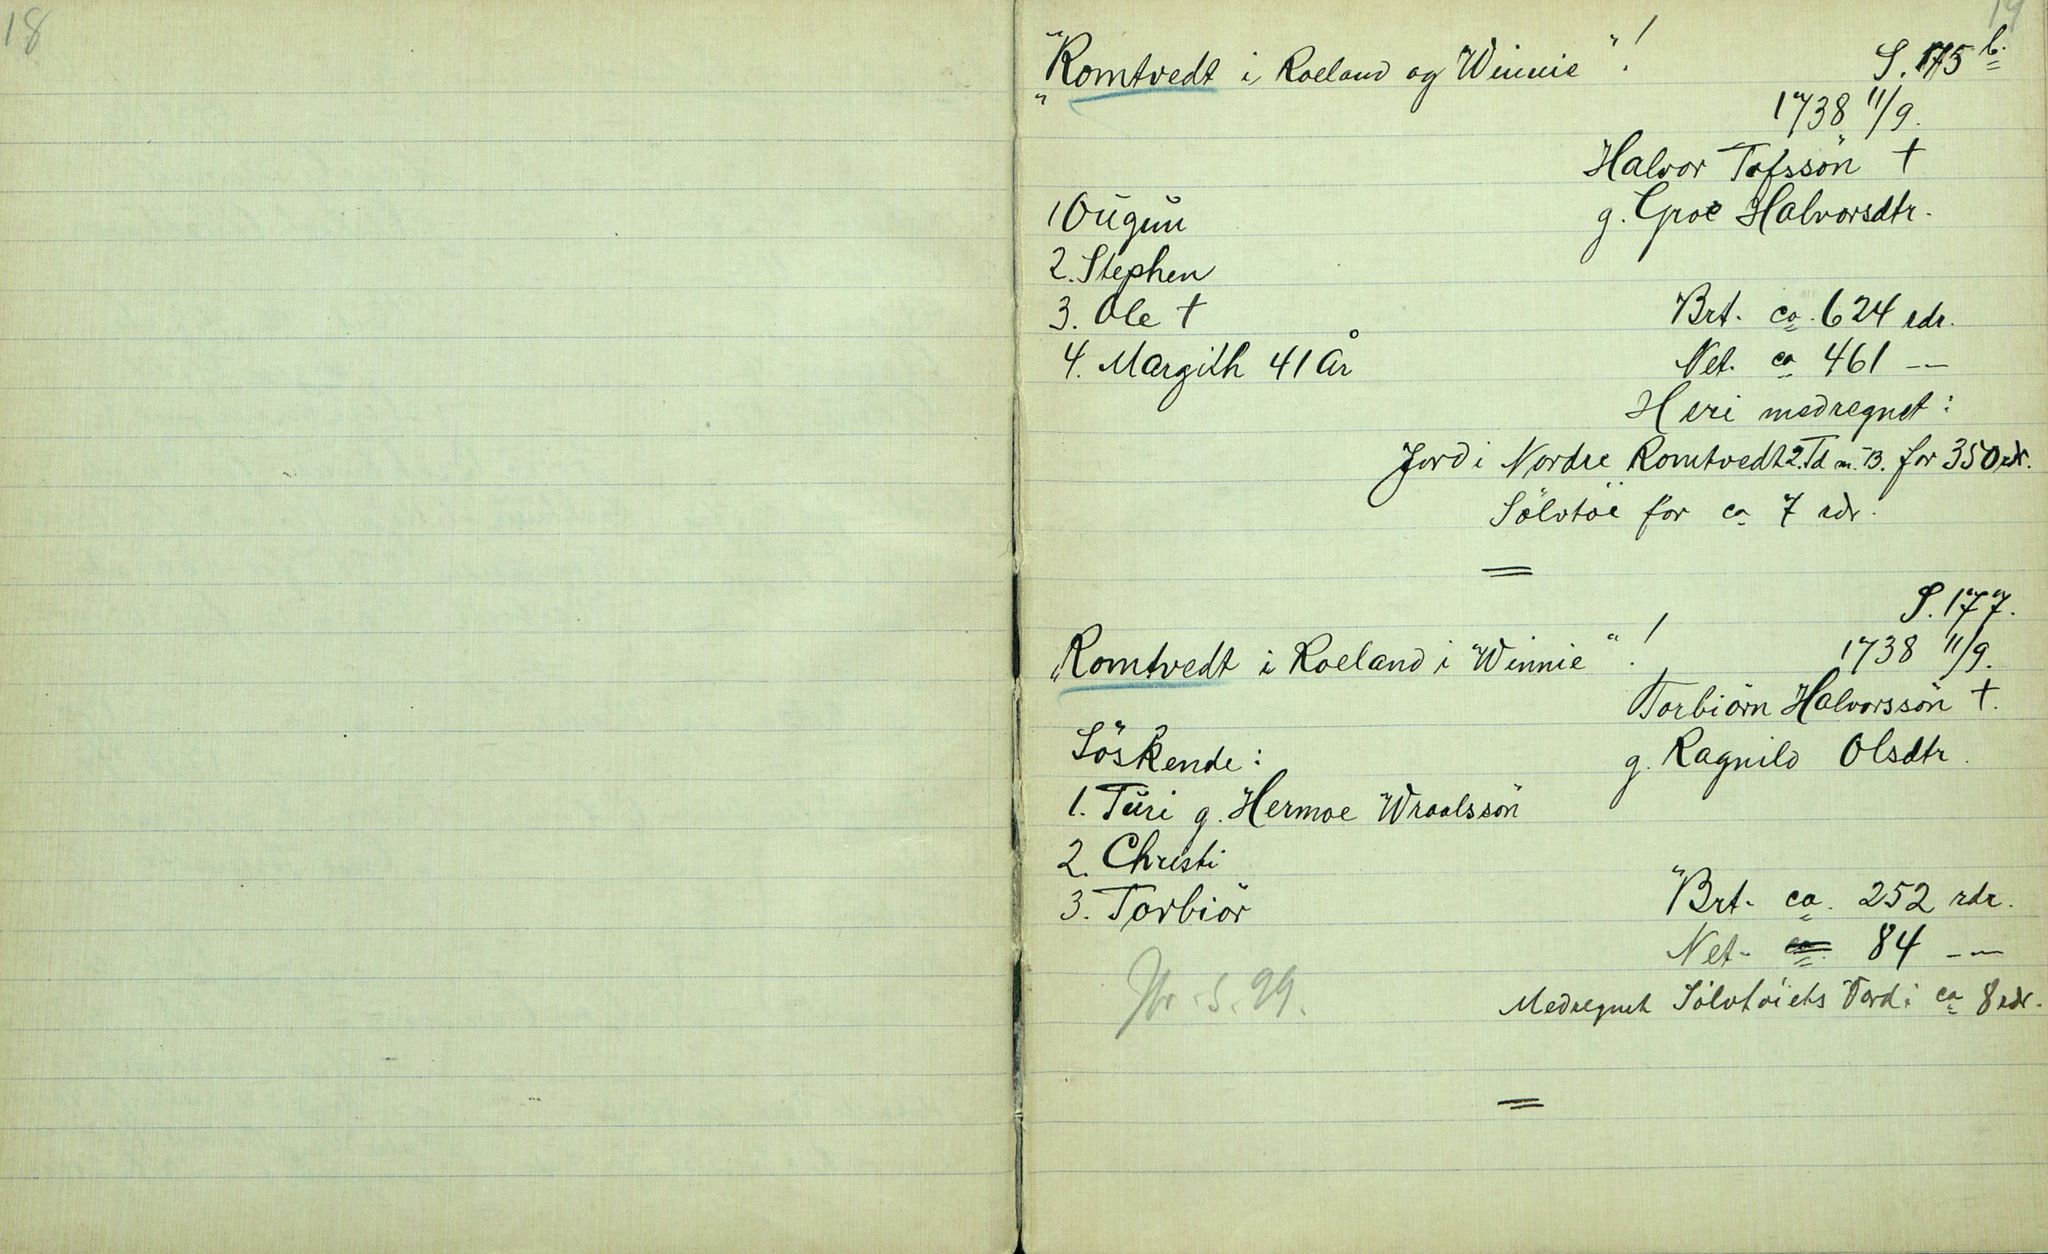 18
19
"Romtvedt i Roeland og Winnie"!
S. 175 b.
1738 11/9.
Halvor Tofssön †
g. Groe Halvorsdtr.
1 Oŭgŭn
2. Stephen
3. Ole †
4. Margith 41 År
Brt. ca. 624 rdr.
Net. ca 461 -"-
Heri medregnet:
Jord i Nordre Romtvedt 2 Td m. B. for 350 rdr.
Sölvtöi for ca 7 rdr.
S. 177.
"Romtvedt i Roeland i Winnie"!
1738 11/9.
Torbiörn Halvorssön †.
g. Ragnild Olsdtr.
Söskende:
1. Tŭri g. Hermoe Wraalssön
2. Christi
3. Torbiör
Brt. ca. 252 rdr.
Net. ca. 84 -"-
Medregnet Sölvtöiets Værdi ca 8 rdr.
S. 99.